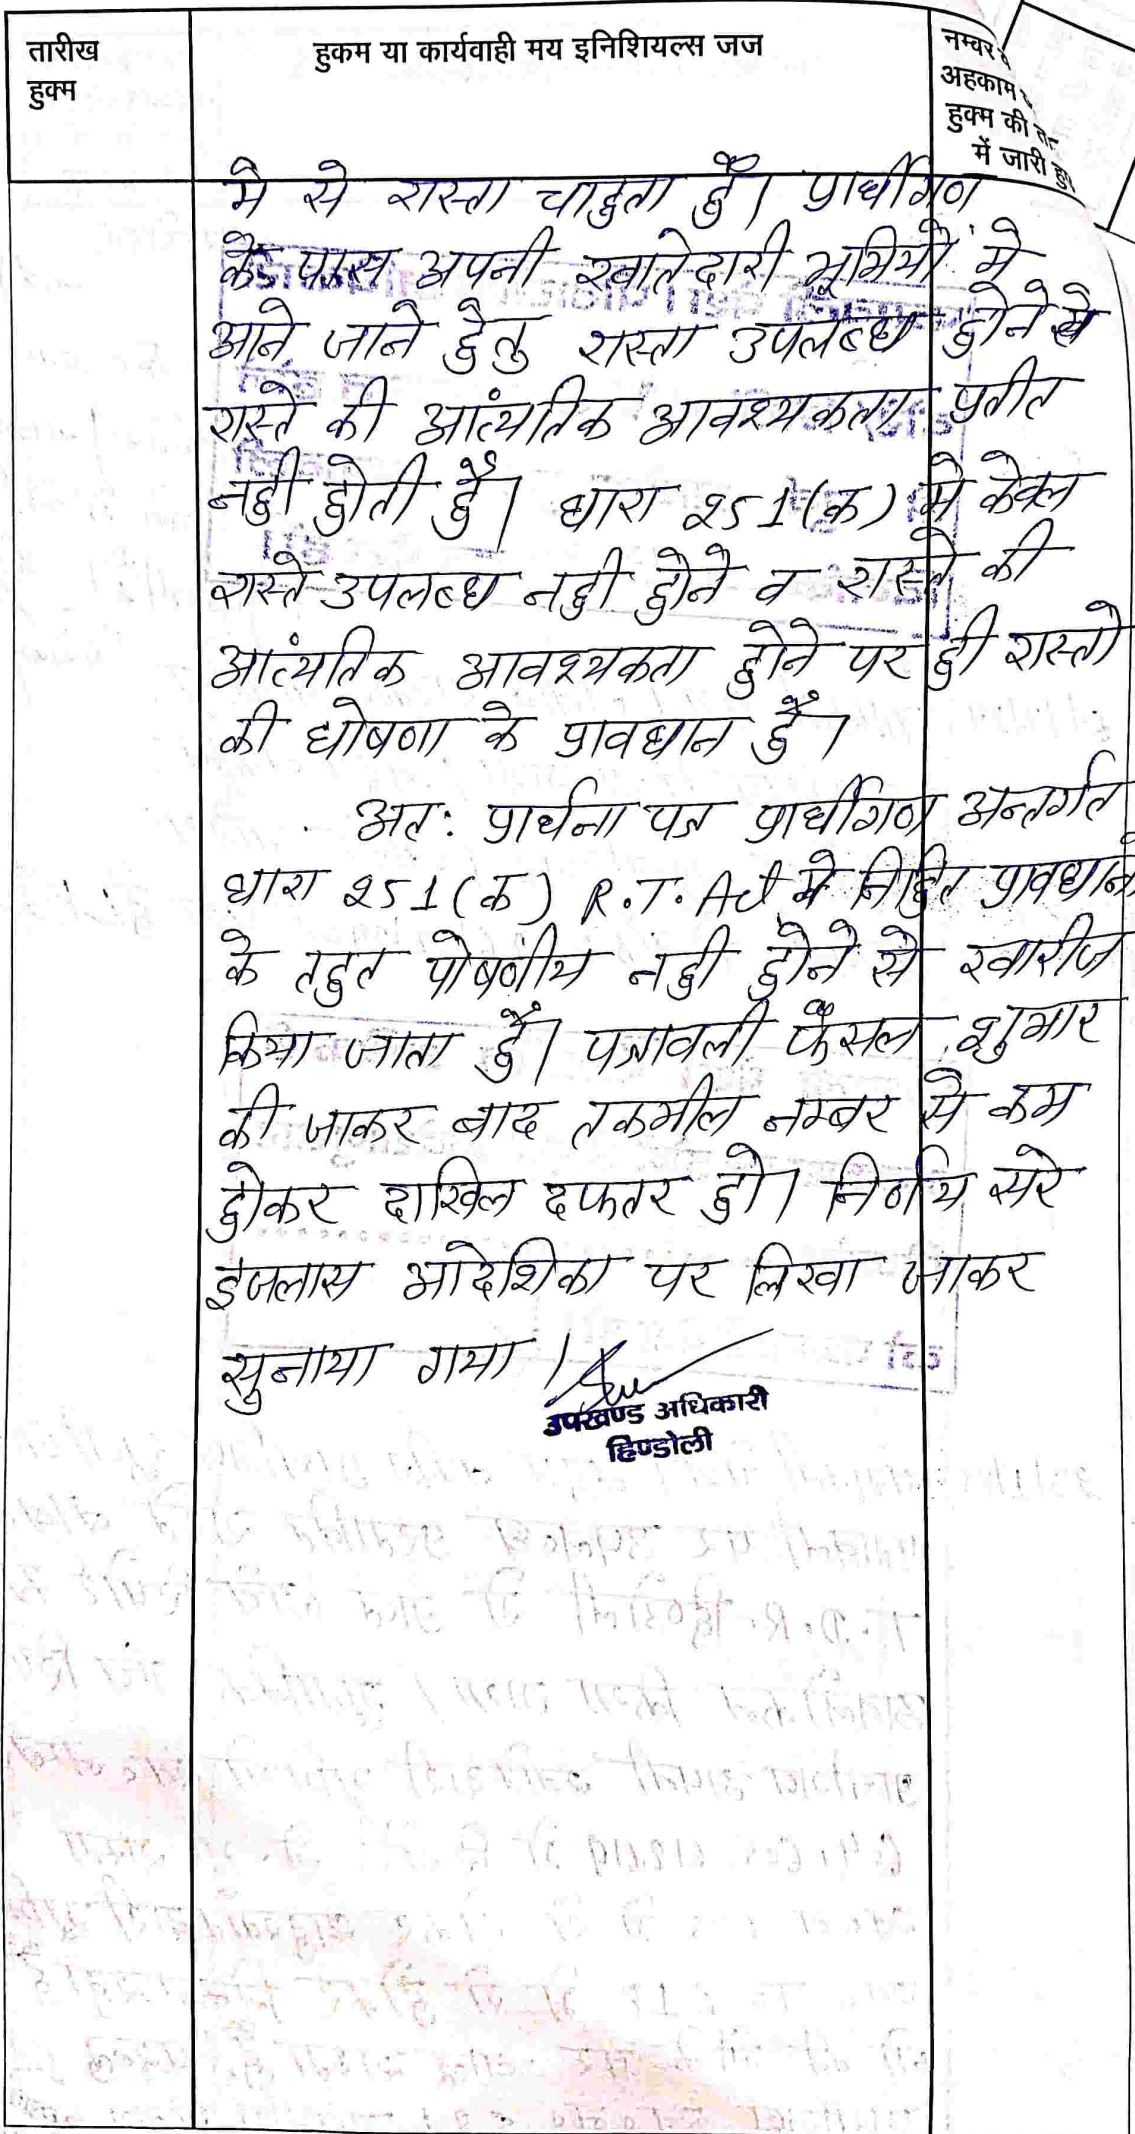 तारीख
हुक्म
हुकम या कार्यवाही मय इनिशियल्स जज
नम्बर
अहकाम
हुक्म की
में जारी
मे से रास्ता चाहता हैं। प्रार्थीगण
के पास अपनी खातेदारी भूमियों मे
आने जाने हेतु रास्ता उपलब्ध होने से
रास्ते की आंत्यतिक आवश्यकता प्रतीत
नही होती हैं। धारा 251(क) मे केवल
रास्ते उपलब्ध नही होने व रास्ते की
आंत्यतिक आवश्यकता होने पर ही रास्तो
की घोषणा के प्रावधान हैं।
अत: प्रार्थना पत्र प्रार्थीगण अन्तर्गत
धारा 251(क) R.T. Act मे निहित प्रावधान
के तहत पोषणीय नही होने से खारीज
किया जाता हैं। पत्रावली फैसल शुमार
की जाकर बाद तकमील नम्बर से कम
होकर दाखिल दफतर हो। निर्णय सरे
इजलास आदेशिका पर लिखा जाकर
सुनाया गया।
उपखण्ड अधिकारी
हिण्डोली